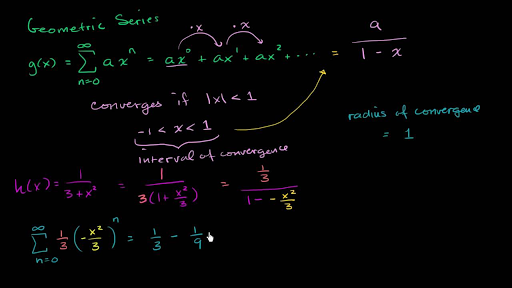 Geometric Series
·x ·x
g(x) = ∑_{n=0}^{∞} a xⁿ = ax⁰ + ax¹ + ax² + ··· = a / (1 - x)
converges if |x| < 1
-1 < x < 1
interval of convergence
radius of convergence
= 1
h(x) = 1 / (3 + x²) = 1 / (3(1 + x²/3)) = (1/3) / (1 - -x²/3)
∑_{n=0}^{∞} 1/3 (-x²/3)ⁿ = 1/3 - 1/9